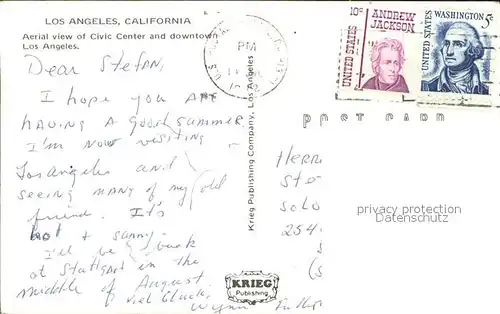 LOS ANGELES, CALIFORNIA
Aerial view of Civic Center and downtown
Los Angeles.
Dear Stefan,
I hope you are
having a good summer
I'm now visiting
Los Angeles and
seeing many of my old
friend. It's
hot & sunny.
I'll be back
at Stuttgart in the
middle of August.
viel Glück,
Wynn
Krieg Publishing Company, Los Angeles
KRIEG
Publishing
PM
10c ANDREW
JACKSON
UNITED STATES
WASHINGTON 5c
UNITED STATES
POST CARD
Herr
Sto
Solo
254
privacy protection
Datenschutz